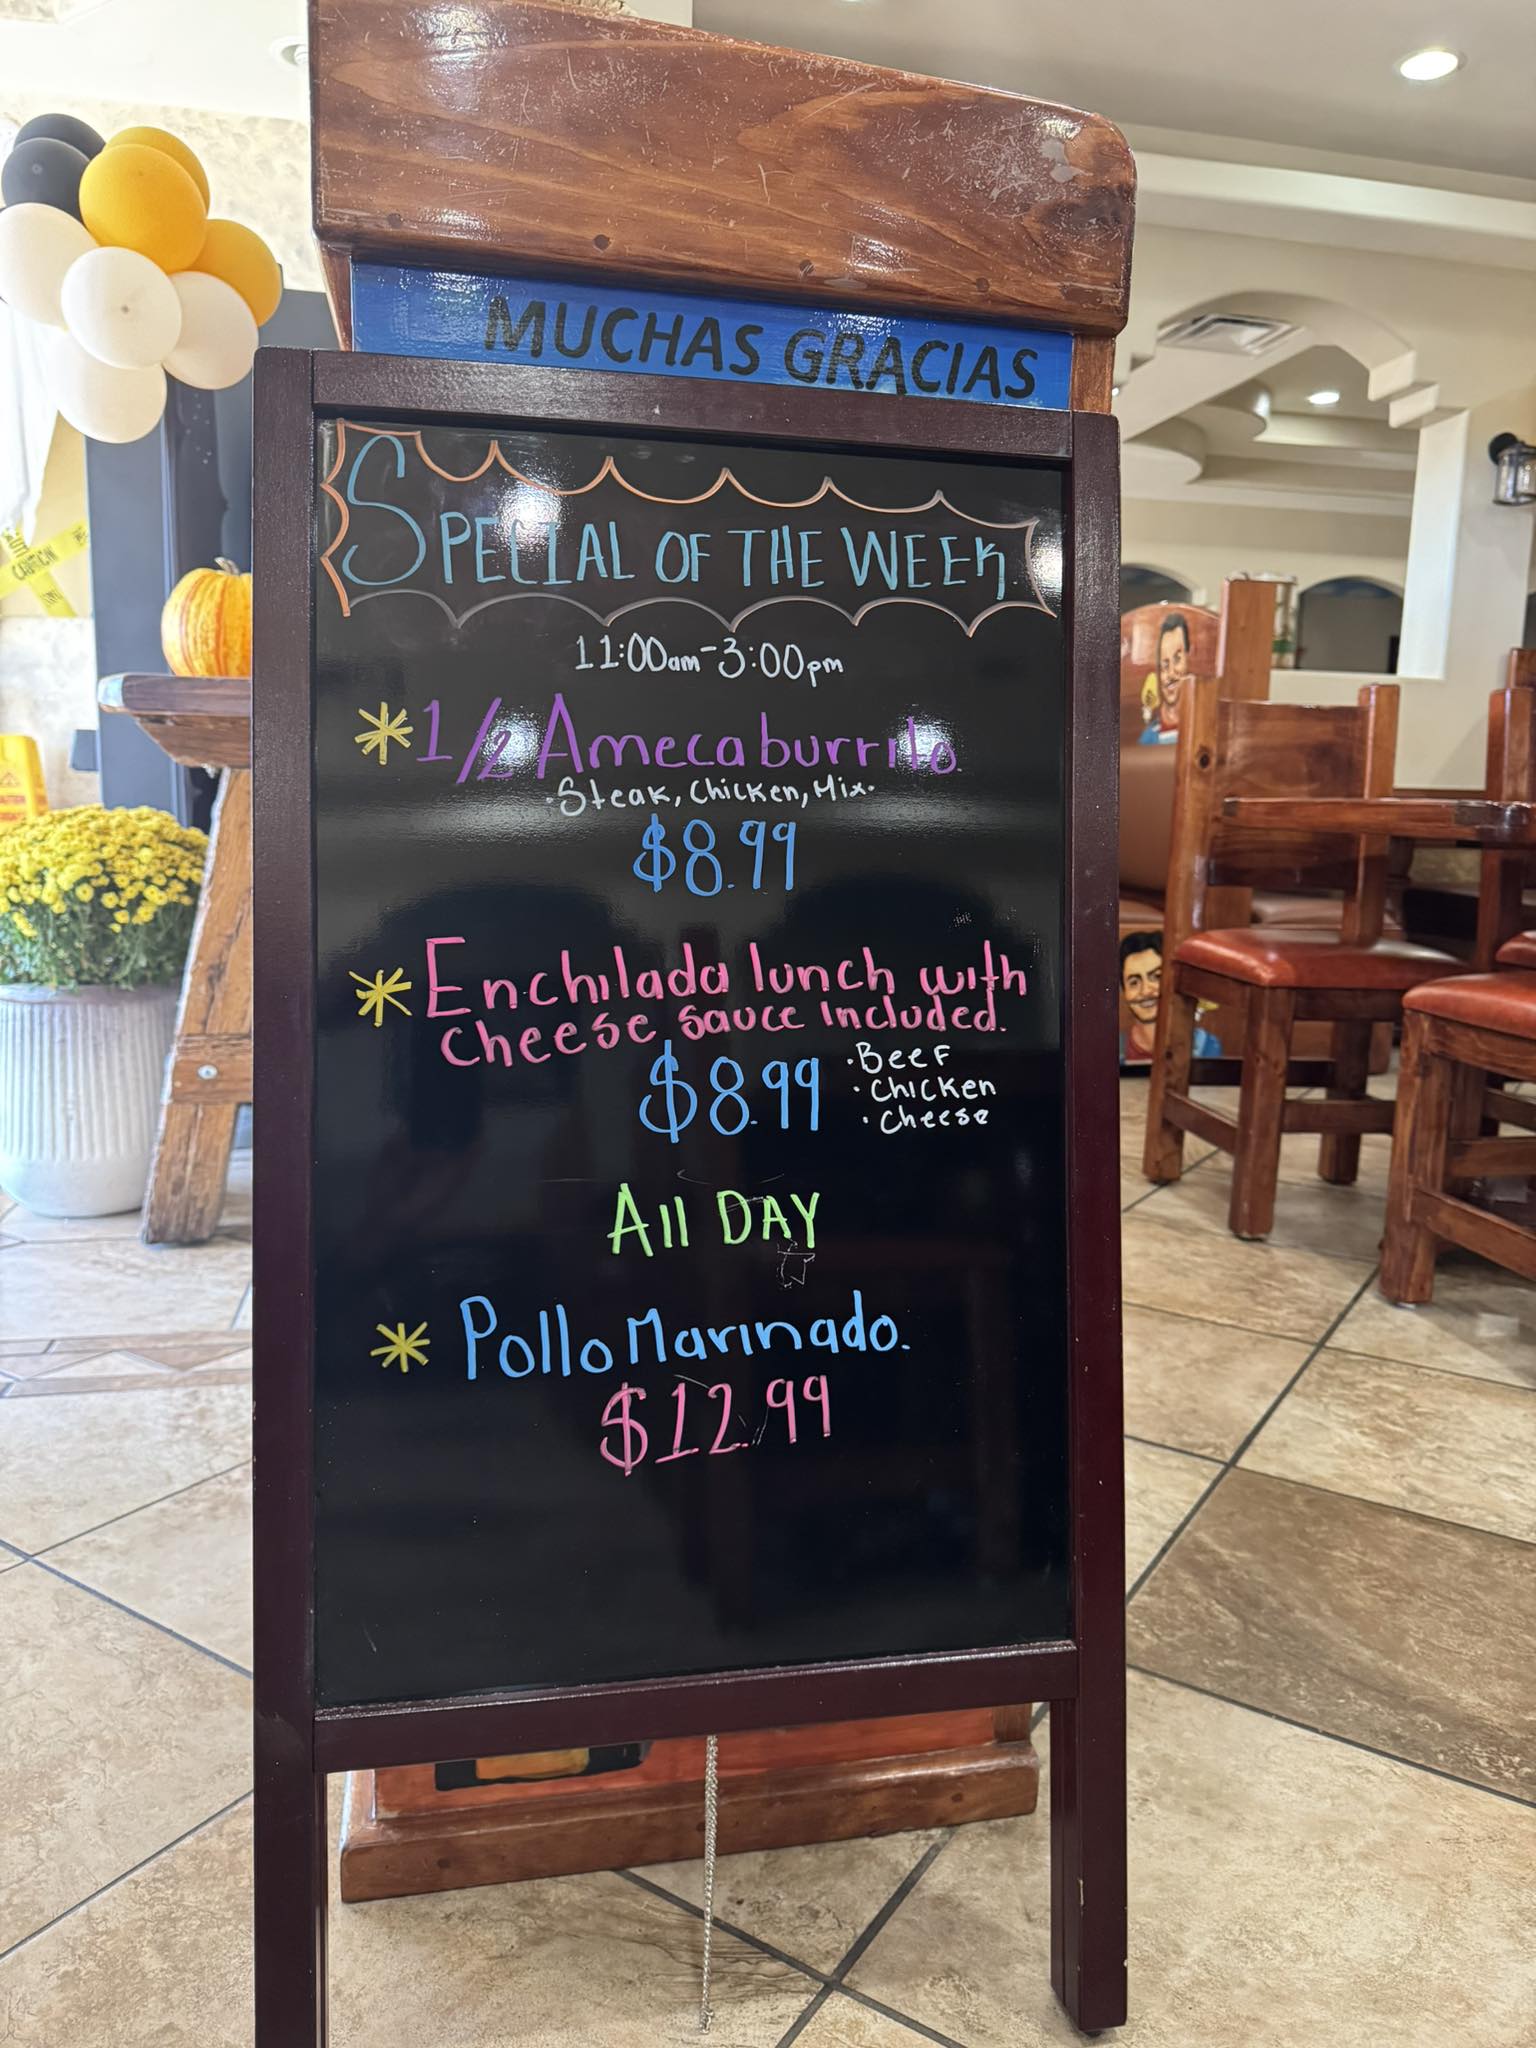 MUCHAS GRACIAS
SPECIAL OF THE WEEK.
11:00am-3:00pm
*1/2 Ameca burrito.
·Steak, Chicken, Mix·
$8.99
*Enchilada lunch with
cheese sauce Included.
$8.99
·Beef
·Chicken
·Cheese
All DAY
*Pollo Marinado.
$12.99
CAUTION